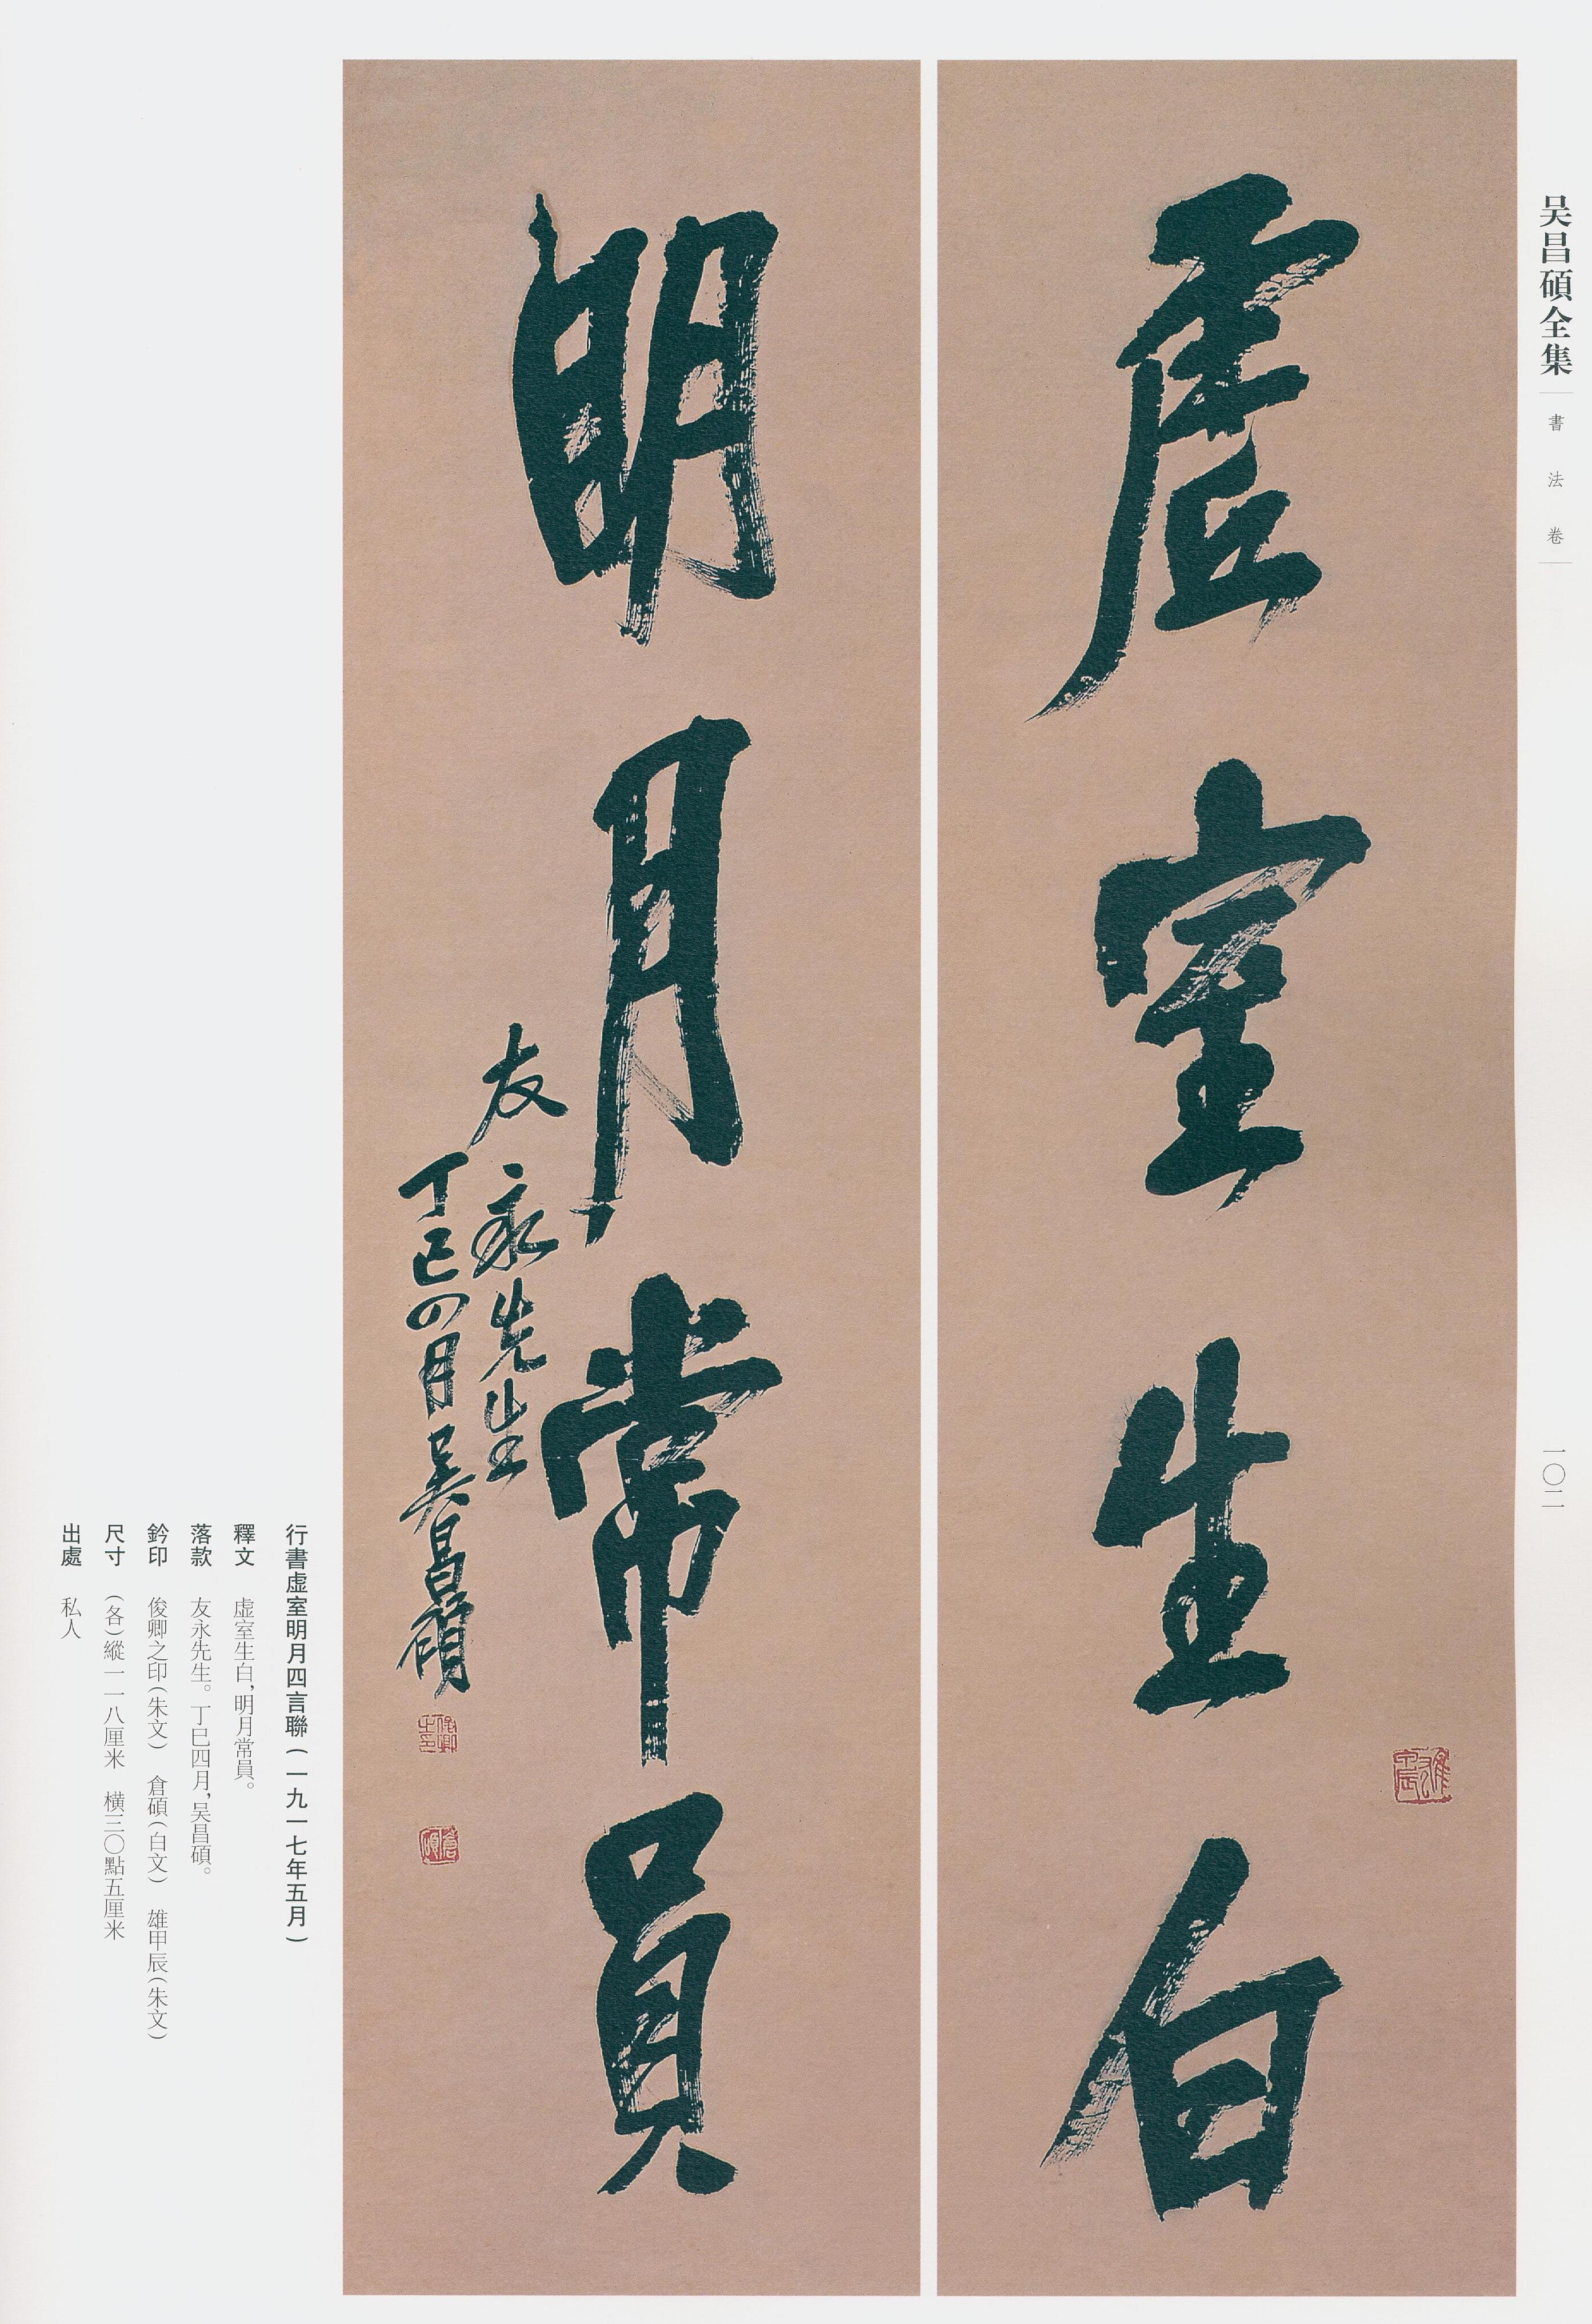 吴昌碩全集
書法卷
一〇二
虛室生白
明月常員
友永先生
丁巳四月吴昌碩
雄甲辰
俊卿之印
倉碩
行書虛室明月四言聯(一九一七年五月)
釋文 虛室生白,明月常員。
落款 友永先生。丁巳四月,吴昌碩。
鈐印 俊卿之印(朱文) 倉碩(白文) 雄甲辰(朱文)
尺寸 (各)縱一一八厘米 橫三〇點五厘米
出處 私人